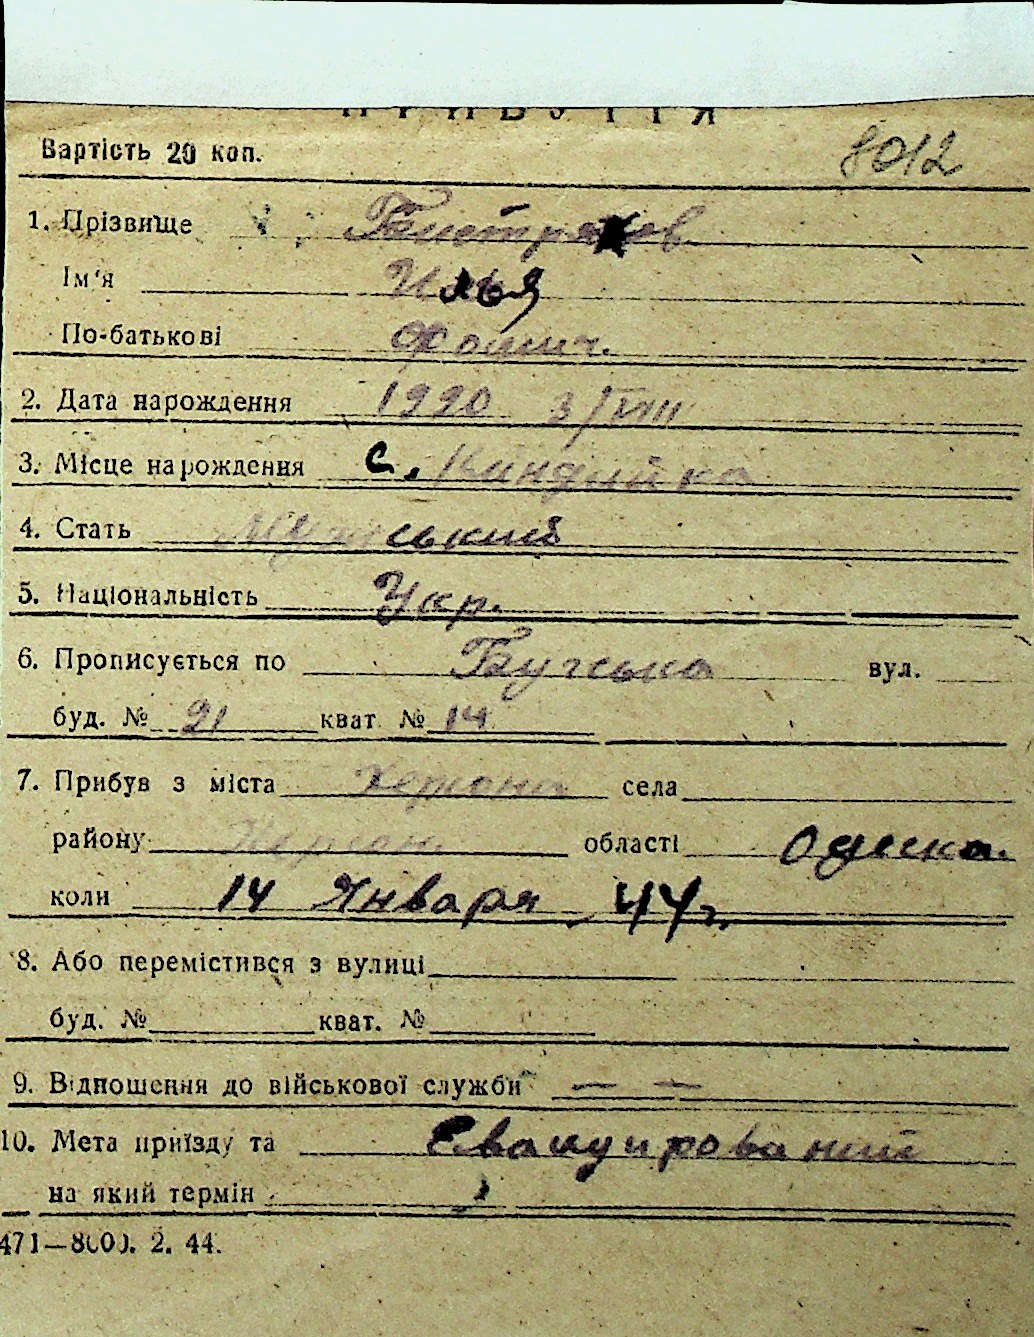 ПРИБУТТЯ
Вартість 20 коп. 8012
1. Прізвище
Ім'я Илья
По-батькові Фомич.
2. Дата народження 1920 3/VIII
3. Місце народження с. Киндийка
4. Стать Мужський
5. Національність Укр.
6. Прописується по Бугська вул.
буд. № 21 кват № 14
7. Прибув з міста Херсона села
району Херсон. області Одеська.
коли 14 Января 44 г.
8. Або перемістився з вулиці
буд. № кват. №
9. Відношення до військової служби — —
10. Мета приїзду та Евакуирований
на який термін
471—8000. 2. 44.